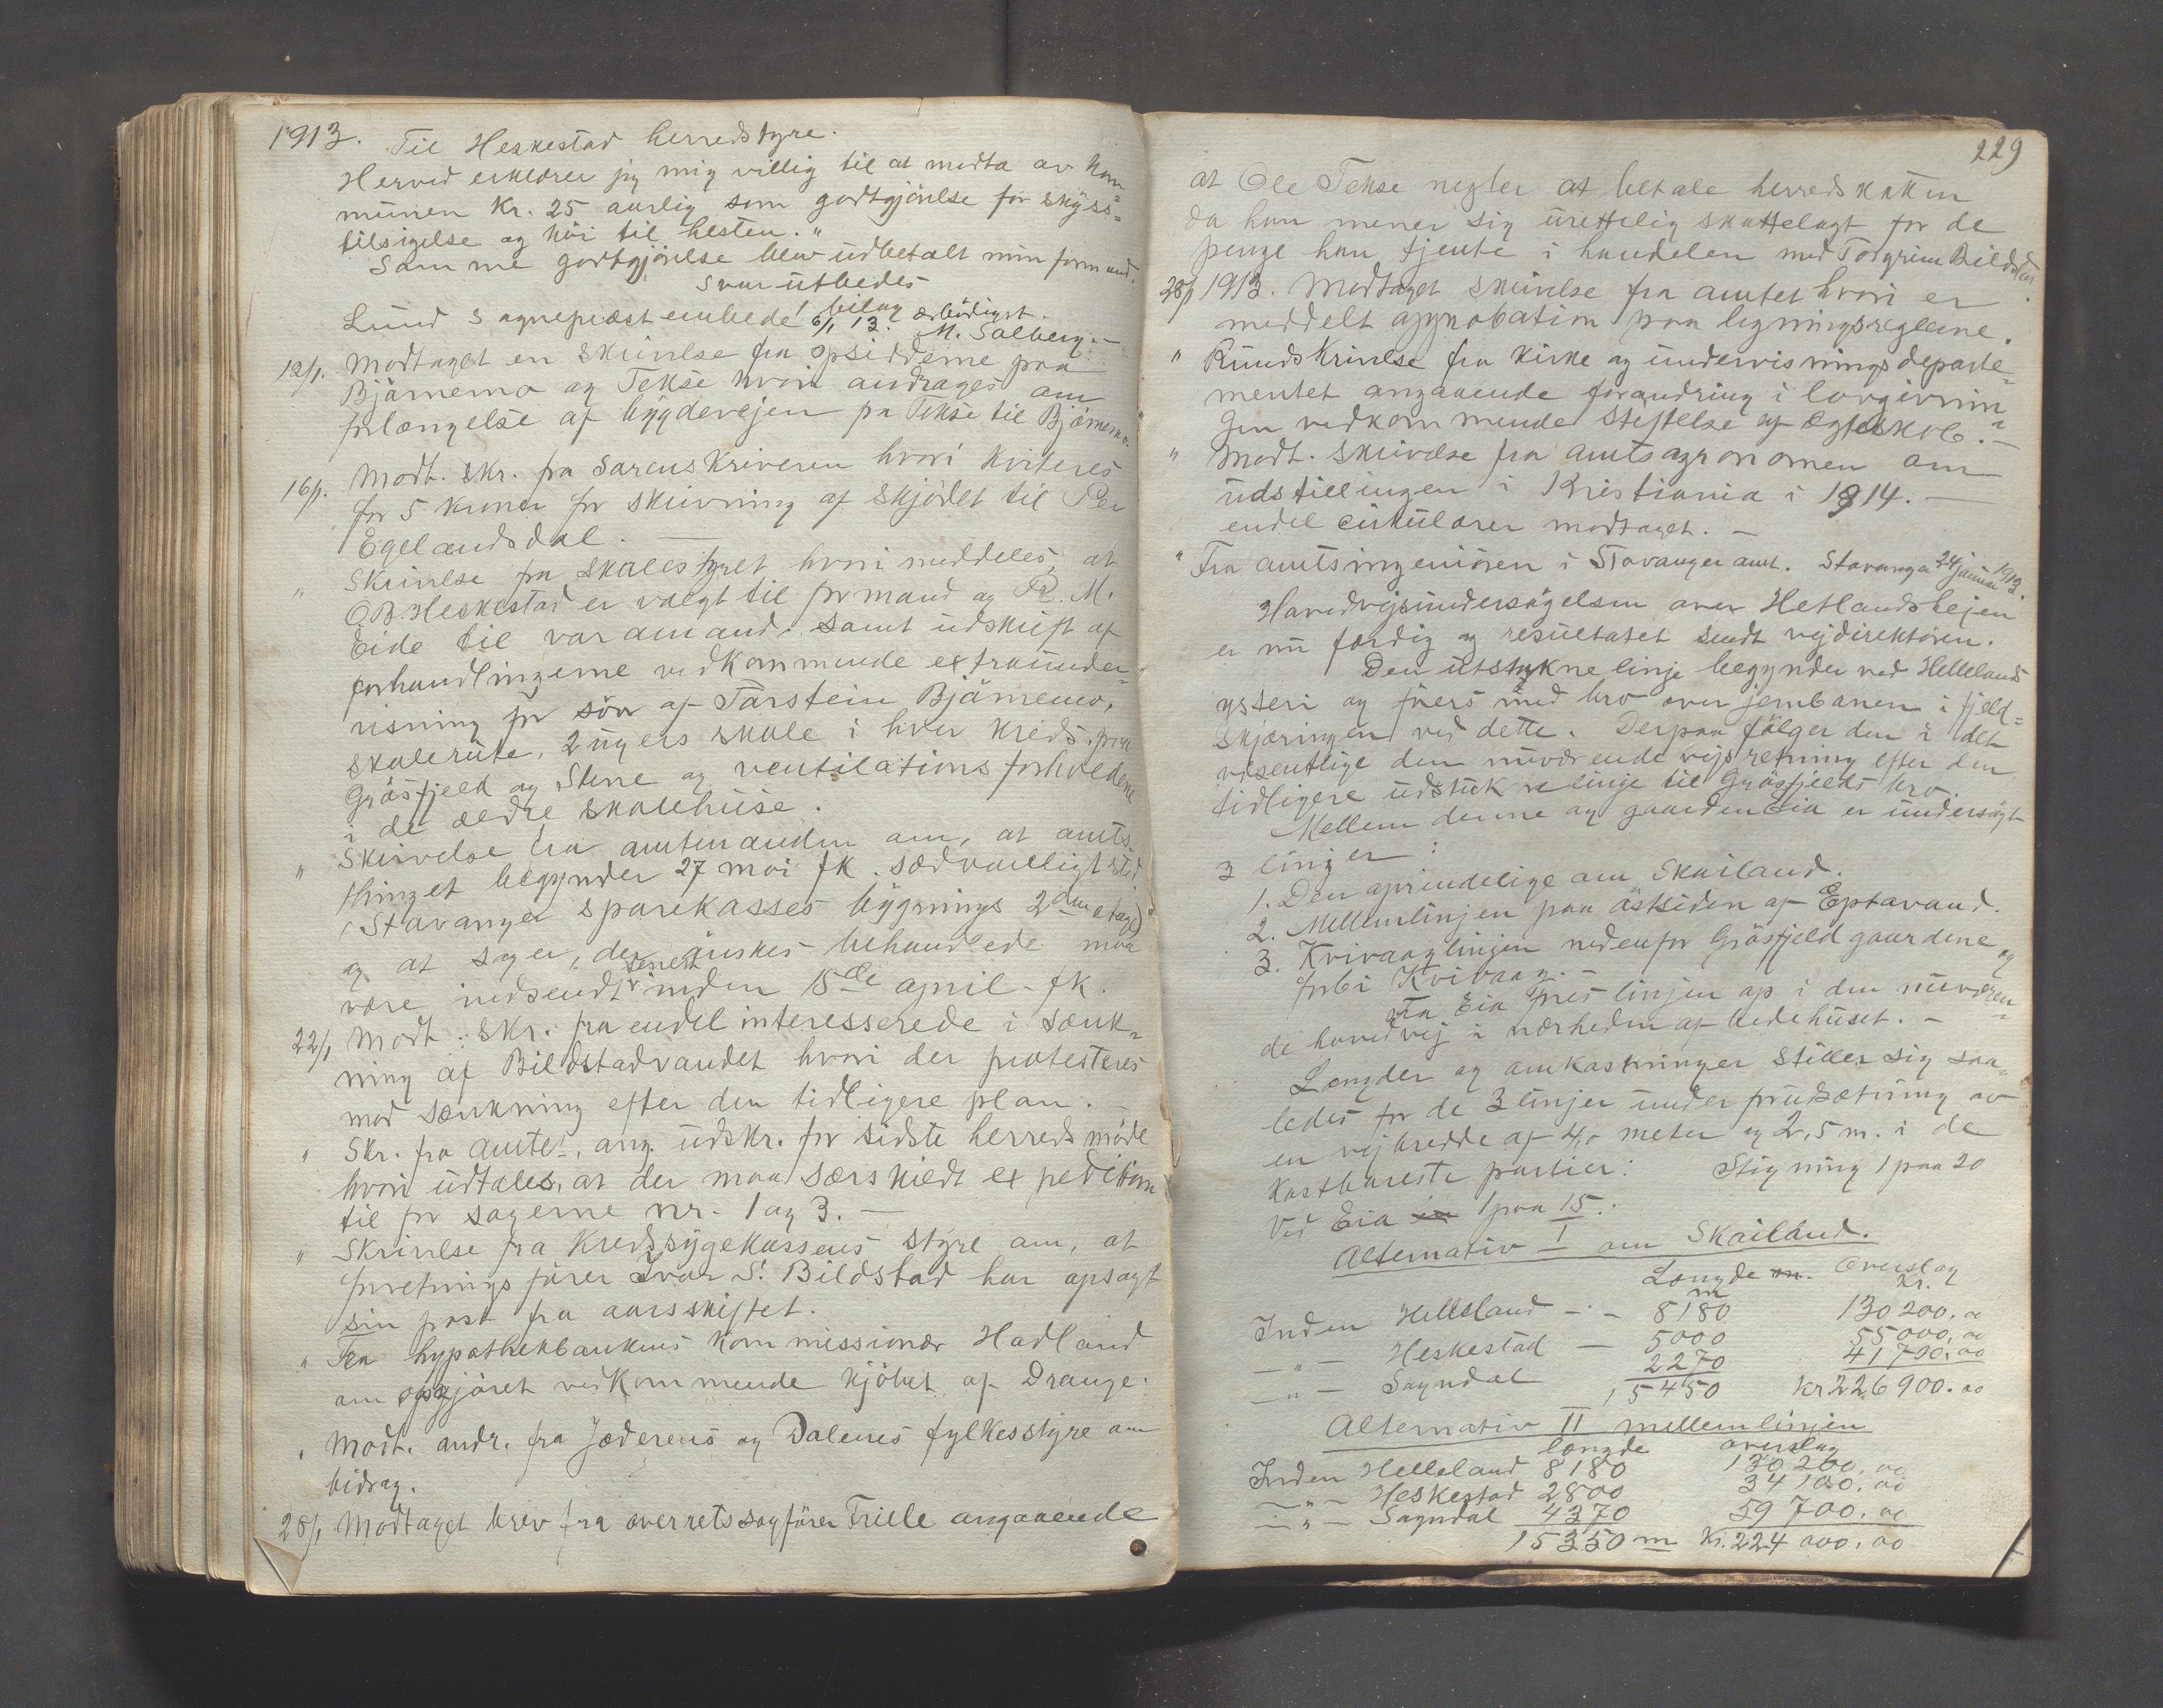 1913. Til Heskestad herredstyre.
Herved erklærer jeg mig villig til at modta av kom-
munen Kr. 25 aarlig som godtgjörelse for skyss-
tilsigelse og höi til hesten."
Samme godtgjörelse blev udbetalt min formand.
Svar utbedes
1 bilag ærbödigst.
Lund Sognepræstembede 6/1 13. M. Solberg. -
12/1. Modtaget en skrivelse fra Opsidderne paa
Bjärnemo og Tekse hvori andrages om
forlængelse af bygdevejen fra Tekse til Bjärnemo.
16/1. Modt. skr. fra Sorenskriveren hvori kviteres
for 5 kroner for skrivning af skjödet til Per
Egelandsdal. -
" Skrivelse fra skolestyret hvori meddeles, at
O.B. Heskestad er valgt til formand og R. M.
Eide til varamand, samt udskrift af
forhandlingerne vedkommende extraunder-
visning for sön af Tarstein Bjärnemo,
skolerute, 2 ugers skole i hver kreds, paa
Gräsfjeld og Stene og ventilationsforholdene
i de ældre skolehuse.
" Skrivelse fra amtmanden om, at amts-
thinget begynder 27 mai fk. sædvanligt sted
(Stavanger sparekasses bygnings 2den etage)
og at sager, der önskes behandlede maa
være indsendt senest inden 15de april fk.
22/1 Modt. skr. fra endel interesserede i sænk-
ning af Bildstadvandet hvori der protesteres
mod sænkning efter den tidligere plan. -
" Skr. fra Amtet, ang. udskr. for sidste herredsmöde
hvori udtales, at der maa særskiedt expedition
til for sagerne nr. 1 og 3. -
" Skrivelse fra Kredssygekassens styre om, at
forretningsförer Ivar S. Bildstad har opsagt
sin post fra aarsskiftet.
" Fra hypothekbankens kommissionær Hadland
om opgjöret vedkommende kjöbet af Drange.
" Modt. andr. fra Jæderens og Dalenes fylkesstyre om
bidrag.
28/1 Modtaget brev fra overretssagförer Trille angaaende
229
at Ole Tekse negter at betale herredskatten
da han mener sig urettelig skattelagt for de
penge han tjente i handelen med Torgrim Bildstad.
28/1 1913. Modtaget skrivelse fra amtet hvori er
meddelt approbation paa ligningsreglerne.
" Rundskrivelse fra kirke og undervisningsdeparte-
mentet angaaende forandring i lovgivnin-
gen vedkommende stiftelse af ægteskab. -
" Modt. skrivelse fra amtsagronomen om
udstillingen i Kristiania i 1914. -
endel cirkulærer modtaget. -
" Fra amtsingeniören i Stavanger amt. Stavanger 24 januar 1913.
Hovedvejsundersögelsen over Hetlandshejen
er nu færdig og resultatet sendt vejdirektören.
Den utstukne linje begynder ved Hellelands
ysteri og föres med bro over jernbanen i fjeld-
skjæringen ved dette. Derpaa fölger den i det
væsentlige den nuværende vejs retning efter den
tidligere udstukne linje til Gräsfjelds bro.
Mellem denne og gaarden Eia er undersögt
3 linjer:
1. Den oprindelige om Skailand.
2. Mellemlinjen paa östsiden af Eptavand.
3. Kvivaaglinjen nedenfor Gräsfjeld gaardene og
forbi Kvivaag. -
Fra Eia föres linjen op i den nuværen-
de hovedvej i nærheden af bedehuset. -
Længder og omkostninger stiller sig saa-
ledes for de 3 linjer under forudsætning av
en vejbredde af 4,0 meter og 2,5 m. i de
kostbareste partier: Stigning 1 paa 20
Ved Eia 1 paa 15.
Alternativ I om Skailand.
Længde Overslag
m Kr.
Inden Helleland - - 8180 130 200.00
- " - Heskestad - 5000 55 000.00
- " - Sogndal 2270 41 700.00
15450 kr 226 900.00
Alternativ II mellemlinjen
længde overslag
Inden Helleland 8180 130 200.00
- " - Heskestad 2800 34 100.00
- " - Sogndal 4370 59 700.00
15350 m Kr. 224 000.00